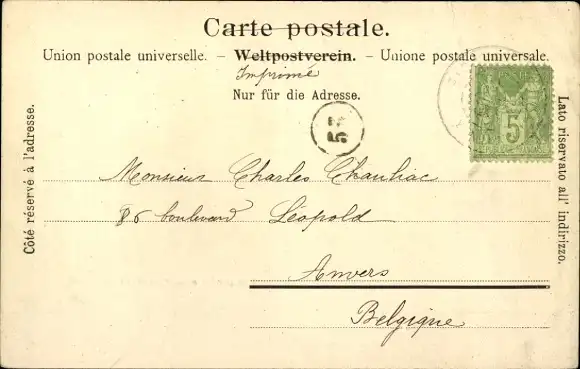 Carte postale.
Union postale universelle. – Weltpostverein. – Unione postale universale.
Imprimé
Nur für die Adresse.
Côté réservé à l'adresse.
Lato riservato all' indirizzo.
5
Monsieur Charles Chauliac
86 boulevard Léopold
Anvers
Belgique